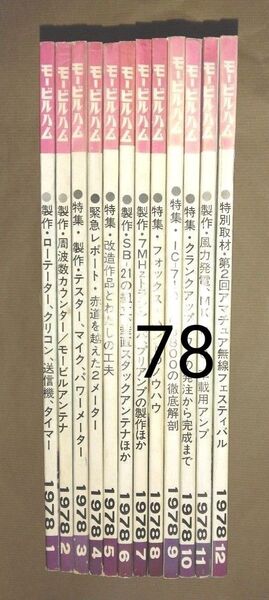 モービルハム
●製作・ローテーター、クリコン、送信機、タイマー
1978 1
モービルハム
●製作・周波数カウンター/モービルアンテナ
1978 2
モービルハム
●特集・製作・テスター、マイク、パワーメーター
1978 3
モービルハム
●緊急レポート・赤道を越えた2メーター
1978 4
モービルハム
●特集・改造作品とわたしの工夫
1978 5
モービルハム
●製作・SB-21の スタックアンテナほか
1978 6
モービルハム
●製作・7MHz プの製作ほか
1978 7
モービルハム
●特集・フォックス ノウハウ
1978 8
モービルハム
●特集・IC-71 の徹底解剖
1978 9
モービルハム
●特集・クランクアップ 発注から完成まで
1978 10
モービルハム
●製作・風力発電、 載用アンプ
1978 11
モービルハム
●特別取材・第2回アマチュア無線フェスティバル
1978 12
78